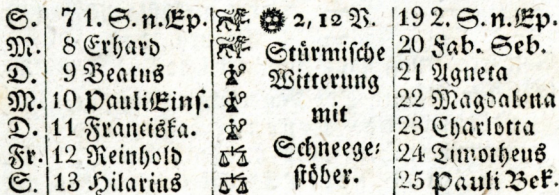 S. 7 1. S. n. Ep. 2, 12 V. 19 2. S. n. Ep.
M. 8 Erhard Stürmiſche 20 Fab. Seb.
D. 9 Beatus Witterung 21 Agneta
M. 10 Pauli Einſ. mit 22 Magdalena
D. 11 Franciska. Schneege⸗ 23 Charlotta
Fr. 12 Reinhold ſtöber. 24 Timotheus
S. 13 Hilarius 25 Pauli Bek